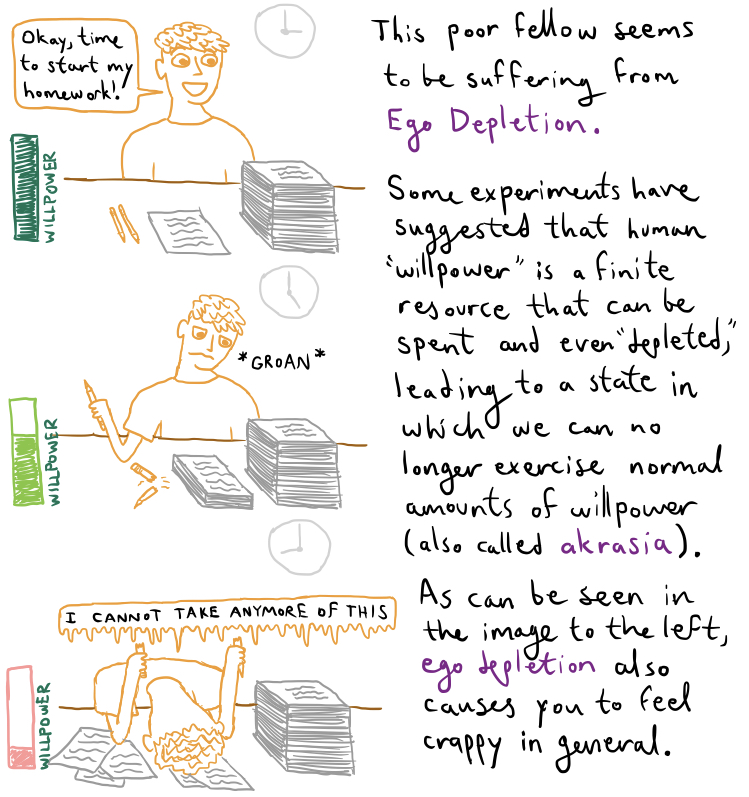 Okay, time
to start my
homework!
WILLPOWER
This poor fellow seems
to be suffering from
Ego Depletion.
Some experiments have
suggested that human
"willpower" is a finite
resource that can be
spent and even "depleted,"
leading to a state in
which we can no
longer exercise normal
amounts of willpower
(also called akrasia).
*GROAN*
WILLPOWER
I CANNOT TAKE ANYMORE OF THIS
WILLPOWER
As can be seen in
the image to the left,
ego depletion also
causes you to feel
crappy in general.